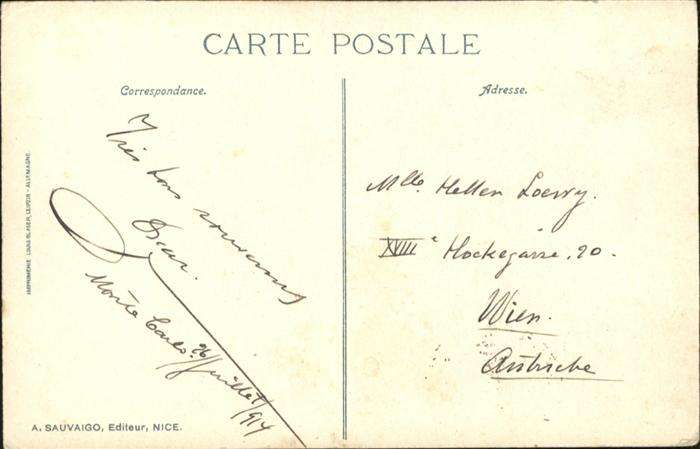 CARTE POSTALE
Correspondance.
Adresse.
Très bons souvenirs
Oscar.
Monte Carlo. 26/Juillet/914
Mlle Hellen Loewy.
XVIII e Hockegasse. 20.
Wien.
Autriche
IMPRIMERIE LOUIS GLASER, LEIPZIG - ALLEMAGNE
A. SAUVAIGO, Editeur, NICE.